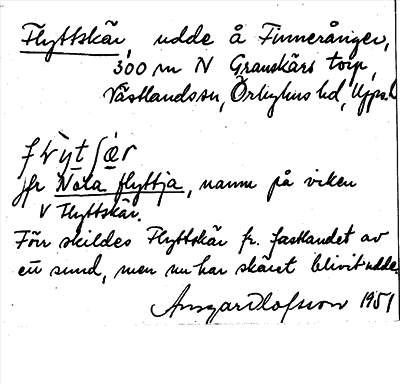 Flyttskär, udde å Finnerånger,
300 m N Granskärs torp,
Västlandssn, Örbyhus hd, Uppsl
Jfr Nota flyttja, namn på viken
V Flyttskär.
Förr skildes Flyttskär fr. fastlandet av
ett sund, men nu har skäret blivit udde.
Ansgar Olofsson 1951